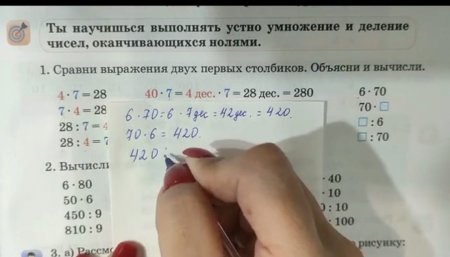 Ты научишься выполнять устно умножение и деление
чисел, оканчивающихся нолями.
1. Сравни выражения двух первых столбиков. Объясни и вычисли.
4 · 7 = 28 40 · 7 = 4 дес. · 7 = 28 дес. = 280 6 · 70
7 · 4 = 28 70 · □
28 : 7 = 4 □ : 6
28 : 4 = 7 □ : 70
6 · 70 = 6 · 7 дес = 42 дес. = 420.
70 · 6 = 420.
420 :
2. Вычисли
6 · 80 · 40
50 · 6 · 10
450 : 9 0 : 10
810 : 9 : 100
3. а) Рассмо рисунку: